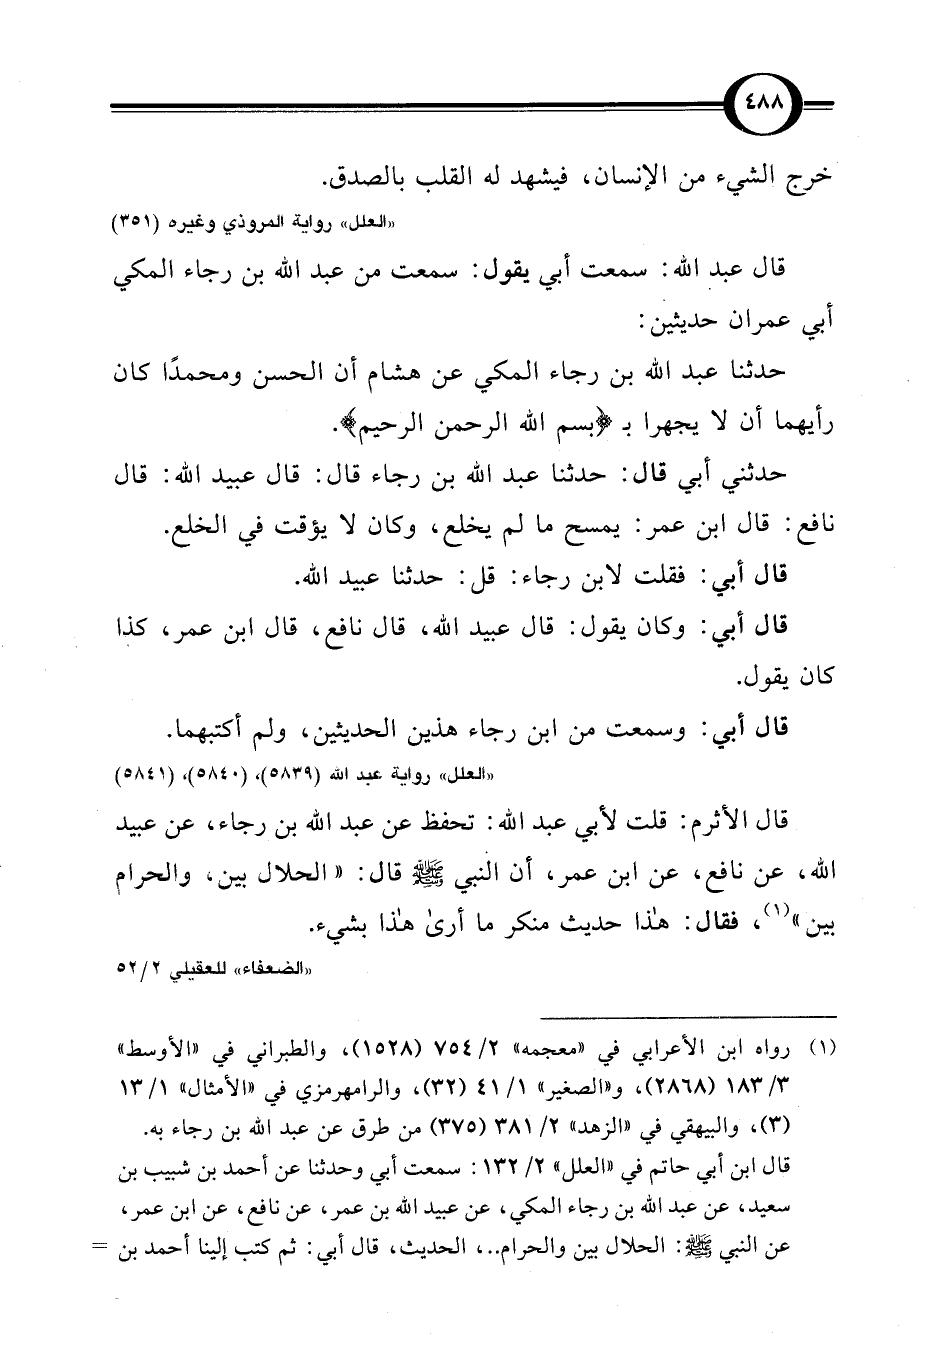 ٤٨٨
خرج الشيء من الإنسان، فيشهد له القلب بالصدق.
«العلل» رواية المروذي وغيره (٣٥١)
قال عبد الله: سمعت أبي يقول: سمعت من عبد الله بن رجاء المكي
أبي عمران حديثين:
حدثنا عبد الله بن رجاء المكي عن هشام أن الحسن ومحمدًا كان
رأيهما أن لا يجهرا بـ ﴿بسم الله الرحمن الرحيم﴾.
حدثني أبي قال: حدثنا عبد الله بن رجاء قال: قال عبيد الله: قال
نافع: قال ابن عمر: يمسح ما لم يخلع، وكان لا يؤقت في الخلع.
قال أبي: فقلت لابن رجاء: قل: حدثنا عبيد الله.
قال أبي: وكان يقول: قال عبيد الله، قال نافع، قال ابن عمر، كذا
كان يقول.
قال أبي: وسمعت من ابن رجاء هذين الحديثين، ولم أكتبهما.
«العلل» رواية عبد الله (٥٨٣٩)، (٥٨٤٠)، (٥٨٤١)
قال الأثرم: قلت لأبي عبد الله: تحفظ عن عبد الله بن رجاء، عن عبيد
الله، عن نافع، عن ابن عمر، أن النبي ﷺ قال: «الحلال بين، والحرام
بين»(١)، فقال: هذا حديث منكر ما أرىٰ هذا بشيء.
«الضعفاء» للعقيلي ٢/ ٥٢
(١) رواه ابن الأعرابي في «معجمه» ٢/ ٧٥٤ (١٥٢٨)، والطبراني في «الأوسط»
٣/ ١٨٣ (٢٨٦٨)، و«الصغير» ١/ ٤١ (٣٢)، والرامهرمزي في «الأمثال» ١/ ١٣
(٣)، والبيهقي في «الزهد» ٢/ ٣٨١ (٣٧٥) من طرق عن عبد الله بن رجاء به.
قال ابن أبي حاتم في «العلل» ٢/ ١٣٢: سمعت أبي وحدثنا عن أحمد بن شبيب بن
سعيد، عن عبد الله بن رجاء المكي، عن عبيد الله بن عمر، عن نافع، عن ابن عمر،
عن النبي ﷺ: الحلال بين والحرام..، الحديث، قال أبي: ثم كتب إلينا أحمد بن =